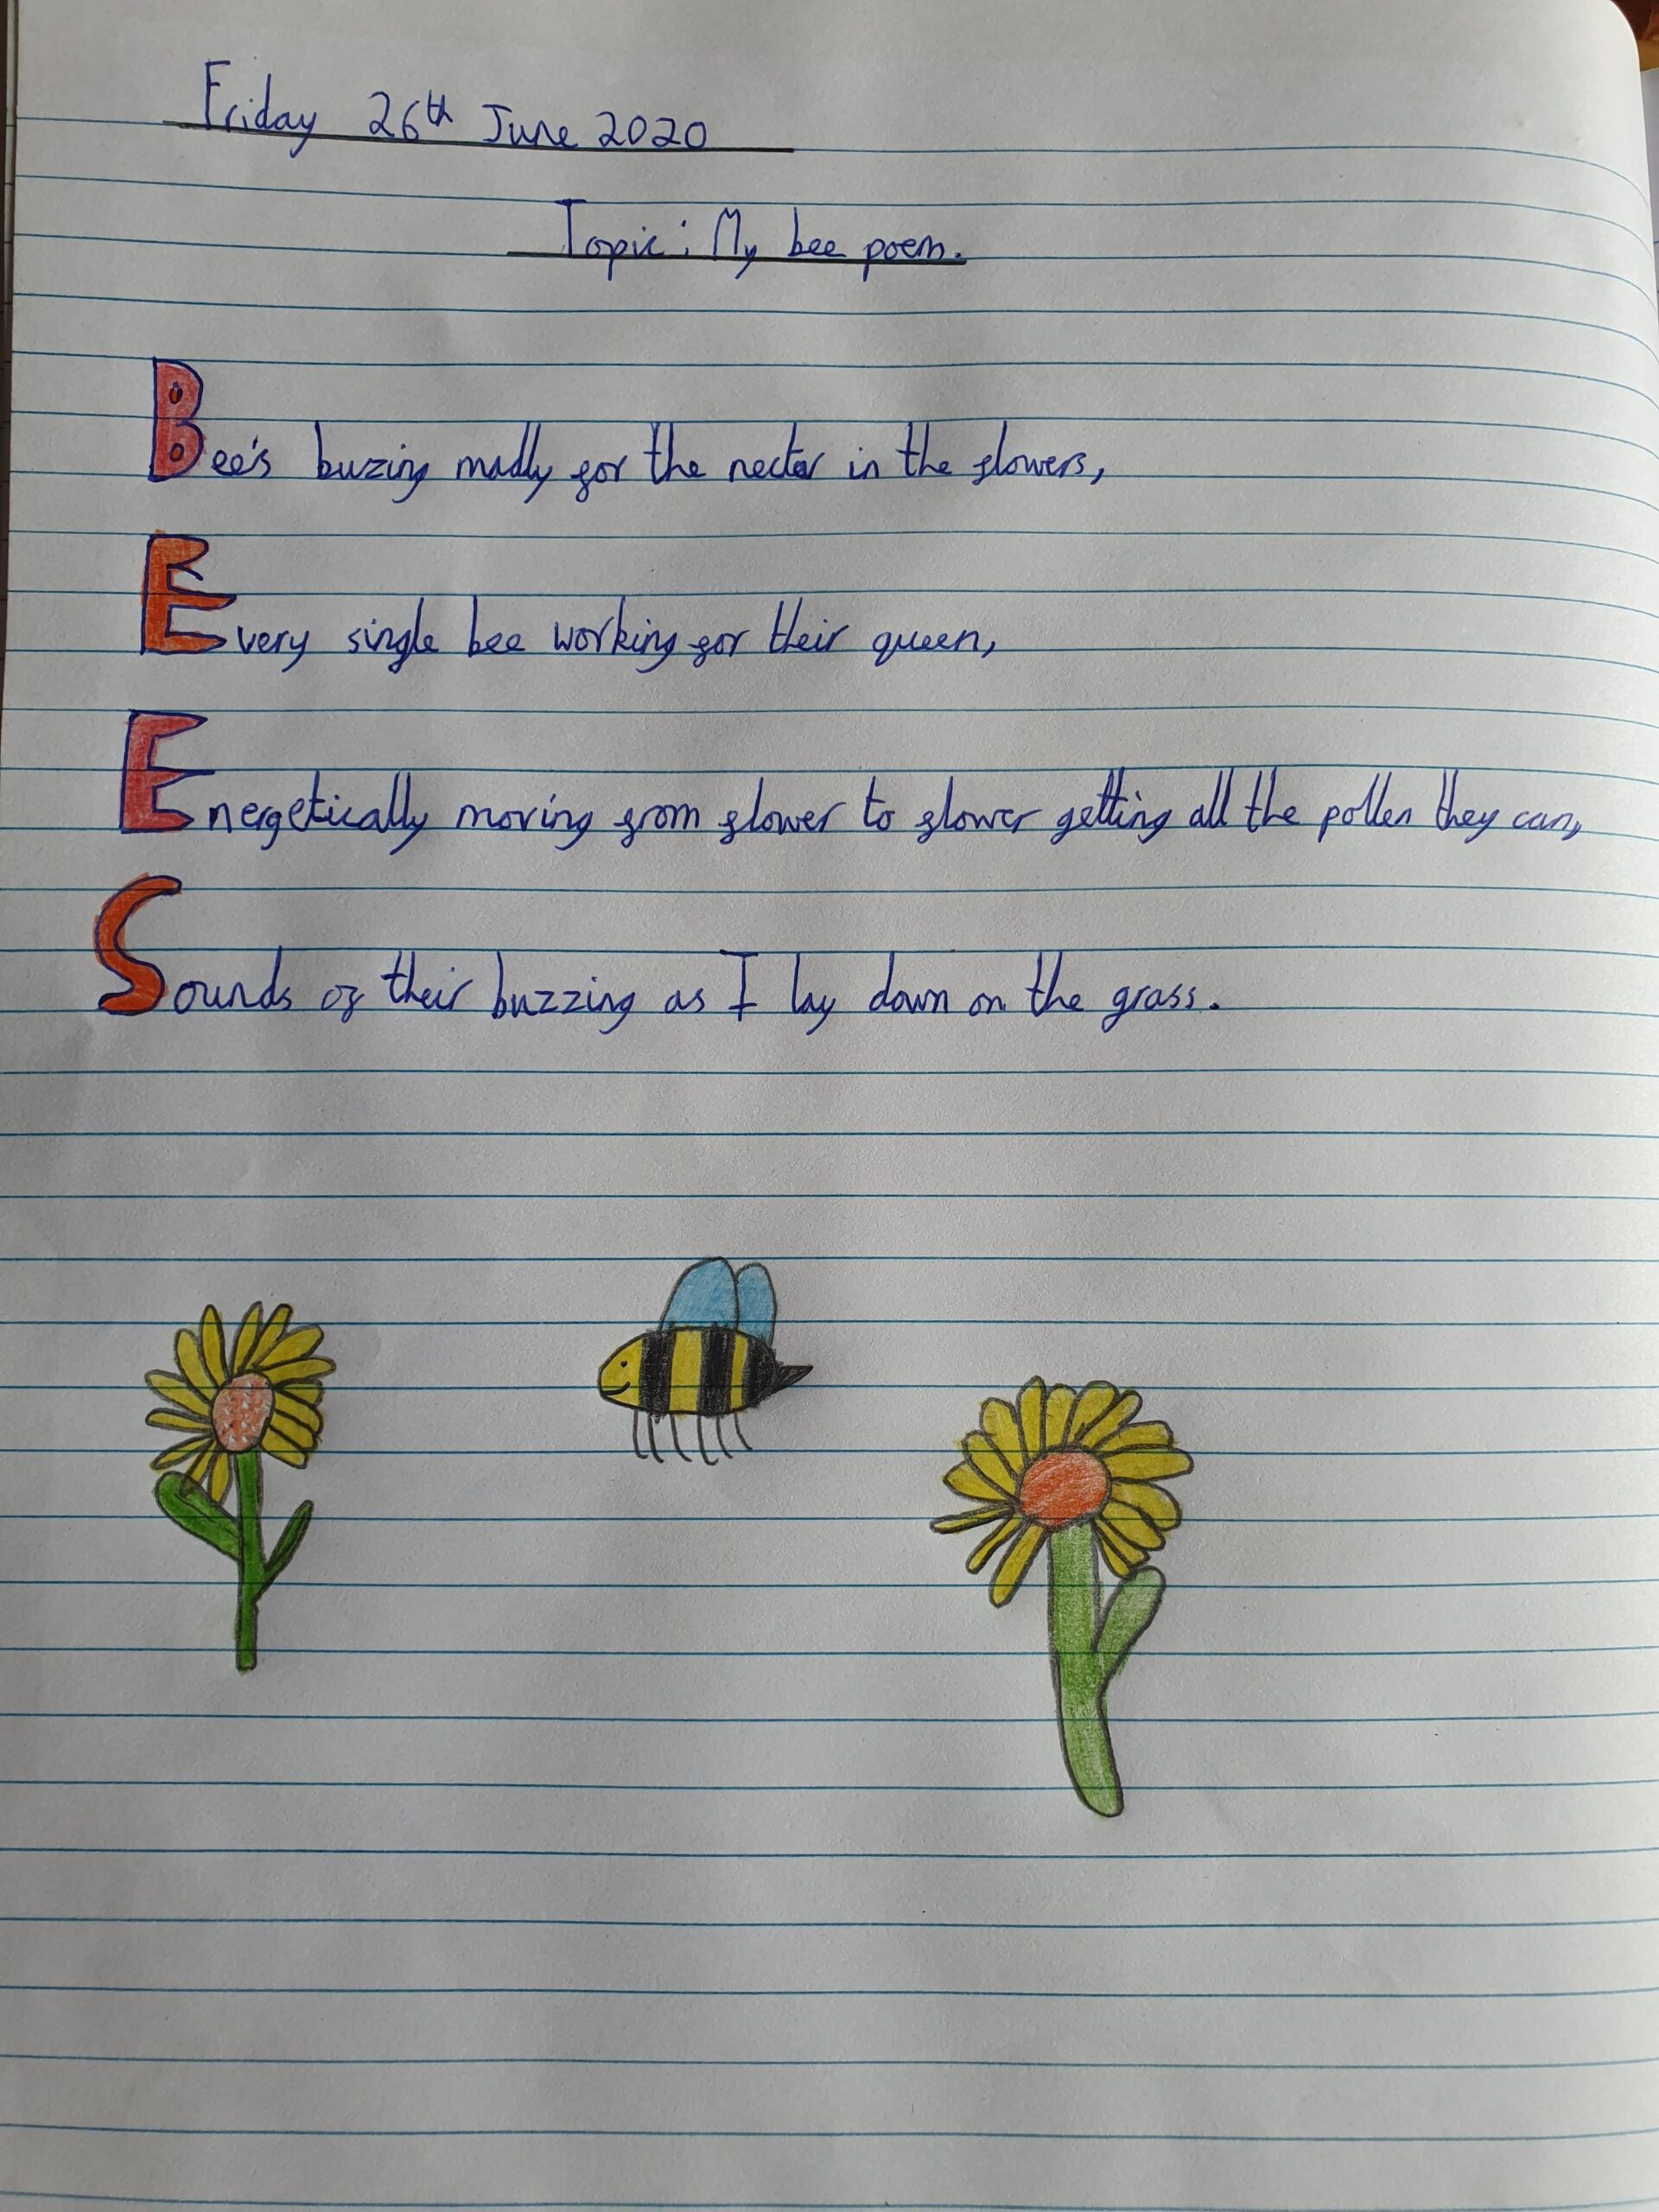 Friday 26th June 2020
Topic: My bee poem.
Bee's buzing madly for the necter in the flowers,
Every single bee working for their queen,
Energetically moving from flower to flower getting all the pollen they can,
Sounds of their buzzing as I lay down on the grass.